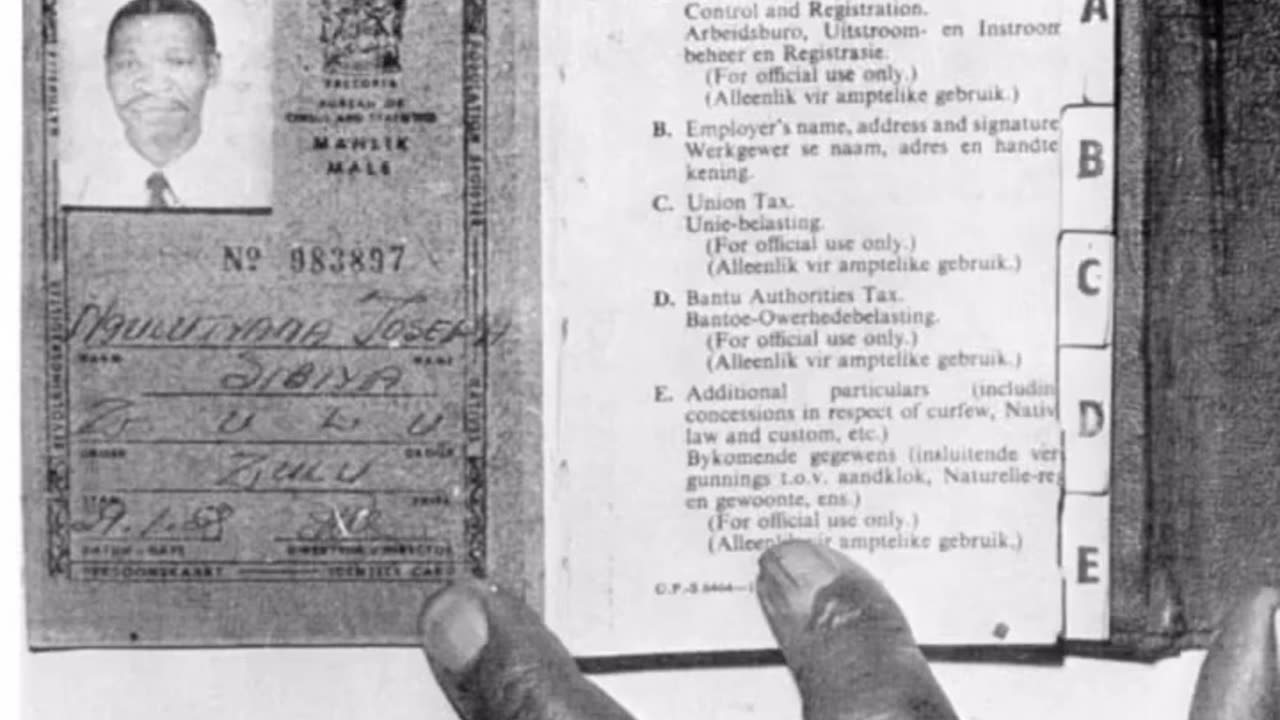 PRETORIA
BUREAU OF
CENSUS AND STATISTICS
MANLIK
MALE
Nº 983897
JOSEPH
NAAM NAME
SIBIYA
Z U L U
ZULU
STAM TRIBE
DATUM - DATE DIREKTEUR - DIRECTOR
PERSOONSKAART IDENTITY CARD
Control and Registration.
Arbeidsburo, Uitstroom- en Instroom
beheer en Registrasie.
(For official use only.)
(Alleenlik vir amptelike gebruik.)
B. Employer's name, address and signature
Werkgewer se naam, adres en handte
kening.
C. Union Tax.
Unie-belasting.
(For official use only.)
(Alleenlik vir amptelike gebruik.)
D. Bantu Authorities Tax.
Bantoe-Owerhedebelasting.
(For official use only.)
(Alleenlik vir amptelike gebruik.)
E. Additional particulars (includin
concessions in respect of curfew, Nativ
law and custom, etc.)
Bykomende gegewens (insluitende ver
gunnings t.o.v. aandklok, Naturelle-re
en gewoonte, ens.)
(For official use only.)
vir amptelike gebruik.)
A
B
C
D
E